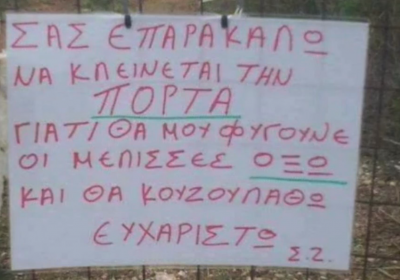 ΣΑΣ ΕΠΑΡΑΚΑΛΩ
ΝΑ ΚΛΕΙΝΕΤΑΙ ΤΗΝ
ΠΟΡΤΑ
ΓΙΑΤΙ ΘΑ ΜΟΥ ΦΥΓΟΥΝΕ
ΟΙ ΜΕΛΙΣΣΕΣ ΟΞΩ
ΚΑΙ ΘΑ ΚΟΥΖΟΥΛΑΘΩ
ΕΥΧΑΡΙΣΤΩ
Σ.Ζ.